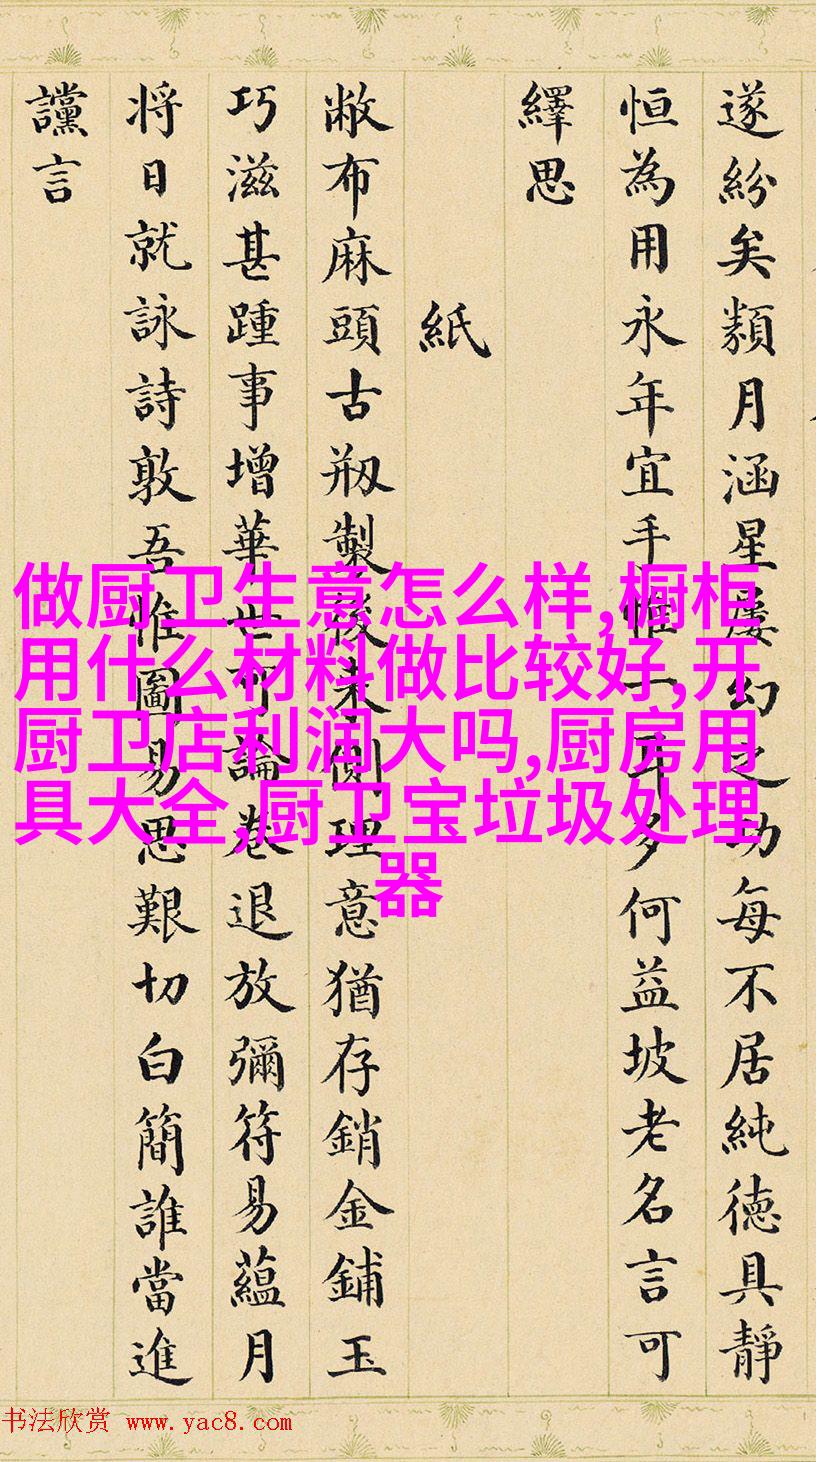 遂紛矣類月涵星屢幻之功每不居純德具靜
恒為用永年宜手惟一耳多何益坡老名言可
繹思
紙
敝布麻頭古剏製後來側理意猶存銷金鋪玉
巧滋甚踵事增華世可論卷退放彌符易蘊月
将日就詠詩敦吾惟圖易思艱切白簡誰當進
讜言
做厨卫生意怎么样,橱柜
用什么材料做比较好,开
厨卫店利润大吗,厨房用
具大全,厨卫宝垃圾处理
器
书法欣赏 www.yac8.com